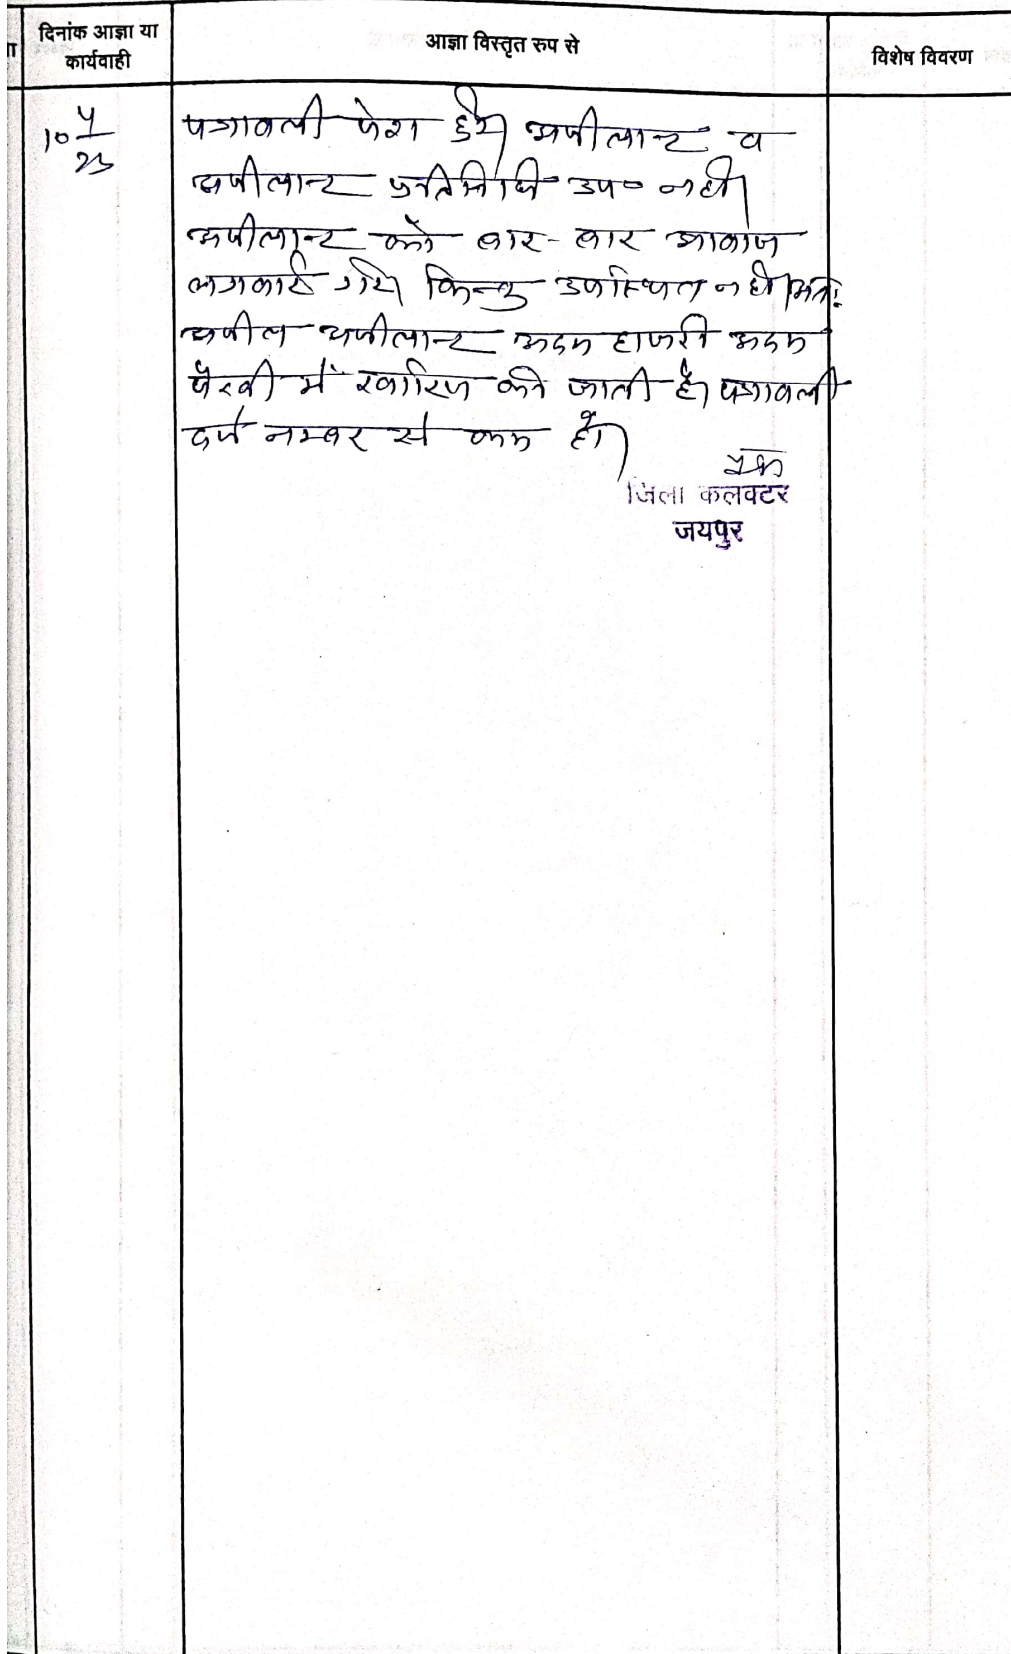 दिनांक आज्ञा या
कार्यवाही
आज्ञा विस्तृत रुप से
विशेष विवरण
10 4/23
पत्रावली पेश हुई। अपीलान्ट व
अपीलान्ट प्रतिनिधि उप० नही।
अपीलान्ट को बार-बार आवाज
लगवाई गयी किन्तु उपस्थित नही। अतः
अपील अपीलान्ट अदम हाजरी अदम
पैरवी में खारिज की जाती है। पत्रावली
दर्ज नम्बर से कम हो।
जिला कलक्टर
जयपुर